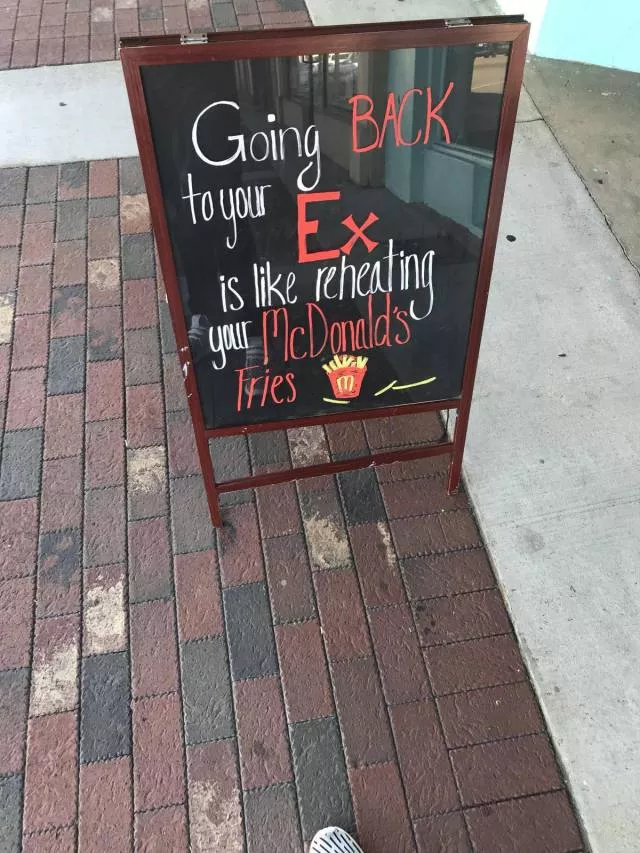 Going BACK
to your Ex
is like reheating
your McDonald's
Fries m